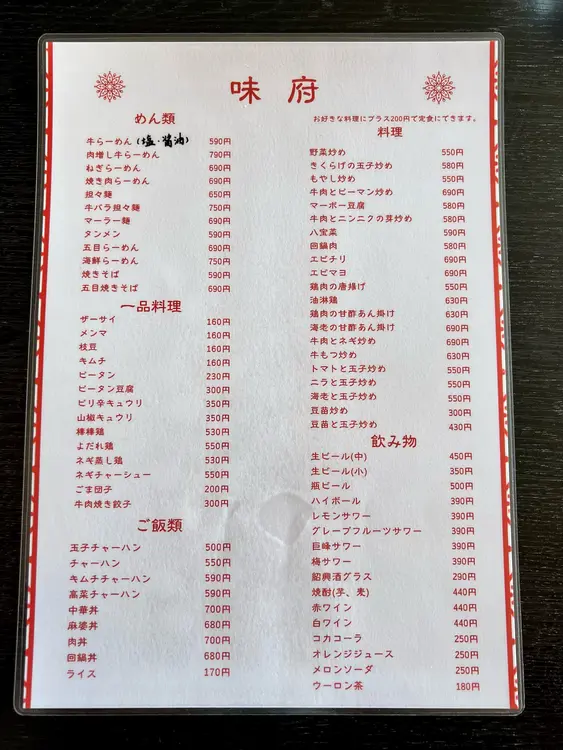 味府
めん類
牛らーめん(塩・醤油) 590円
肉増し牛らーめん 790円
ねぎらーめん 690円
焼き肉らーめん 690円
担々麺 650円
牛バラ担々麺 750円
マーラー麺 690円
タンメン 590円
五目らーめん 690円
海鮮らーめん 750円
焼きそば 590円
五目焼きそば 690円
一品料理
ザーサイ 160円
メンマ 160円
枝豆 160円
キムチ 160円
ピータン 230円
ピータン豆腐 300円
ピリ辛キュウリ 350円
山椒キュウリ 350円
棒棒鶏 530円
よだれ鶏 550円
ネギ蒸し鶏 530円
ネギチャーシュー 550円
ごま団子 200円
牛肉焼き餃子 300円
ご飯類
玉子チャーハン 500円
チャーハン 550円
キムチチャーハン 590円
高菜チャーハン 590円
中華丼 700円
麻婆丼 680円
肉丼 700円
回鍋丼 680円
ライス 170円
お好きな料理にプラス200円で定食にできます。
料理
野菜炒め 550円
きくらげの玉子炒め 580円
もやし炒め 550円
牛肉とピーマン炒め 690円
マーボー豆腐 580円
牛肉とニンニクの芽炒め 580円
八宝菜 590円
回鍋肉 580円
エビチリ 690円
エビマヨ 690円
鶏肉の唐揚げ 550円
油淋鶏 630円
鶏肉の甘酢あん掛け 630円
海老の甘酢あん掛け 690円
牛肉とネギ炒め 690円
牛もつ炒め 630円
トマトと玉子炒め 550円
ニラと玉子炒め 550円
海老と玉子炒め 550円
豆苗炒め 300円
豆苗と玉子炒め 430円
飲み物
生ビール(中) 450円
生ビール(小) 350円
瓶ビール 500円
ハイボール 390円
レモンサワー 390円
グレープフルーツサワー 390円
巨峰サワー 390円
梅サワー 390円
紹興酒グラス 290円
焼酎(芋、麦) 440円
赤ワイン 440円
白ワイン 440円
コカコーラ 250円
オレンジジュース 250円
メロンソーダ 250円
ウーロン茶 180円